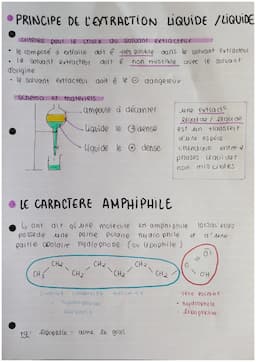 PRINCIPE DE L'EXTRACTION LIQUIDE / LIQUIDE
Critères pour le choix du solvant extracteur
• le composé à extraire doit être très soluble dans le solvant extracteur
• le solvant extracteur doit être non miscible avec le solvant
d'origine
• le solvant extracteur doit être le ⊖ dangereux
Schéma et matériels
ampoule à décanter
liquide le ⊖ dense
liquide le ⊕ dense
une extraction
liquide / liquide
est un transfert
d'une espèce
chimique entre 2
phases liquides
non miscibles
LE CARACTERE AMPHIPHILE
↳ on dit qu'une molécule est amphiphile lorsqu'elle
possède une partie polaire hydrophile et d'une
partie apolaire hydrophobe (ou lipophile)
CH₂ CH₂ CH₂ C O
CH₃ CH₂ CH₂ CH₂ OH
hydrophile
lipophobe
lipophile = aime le gras